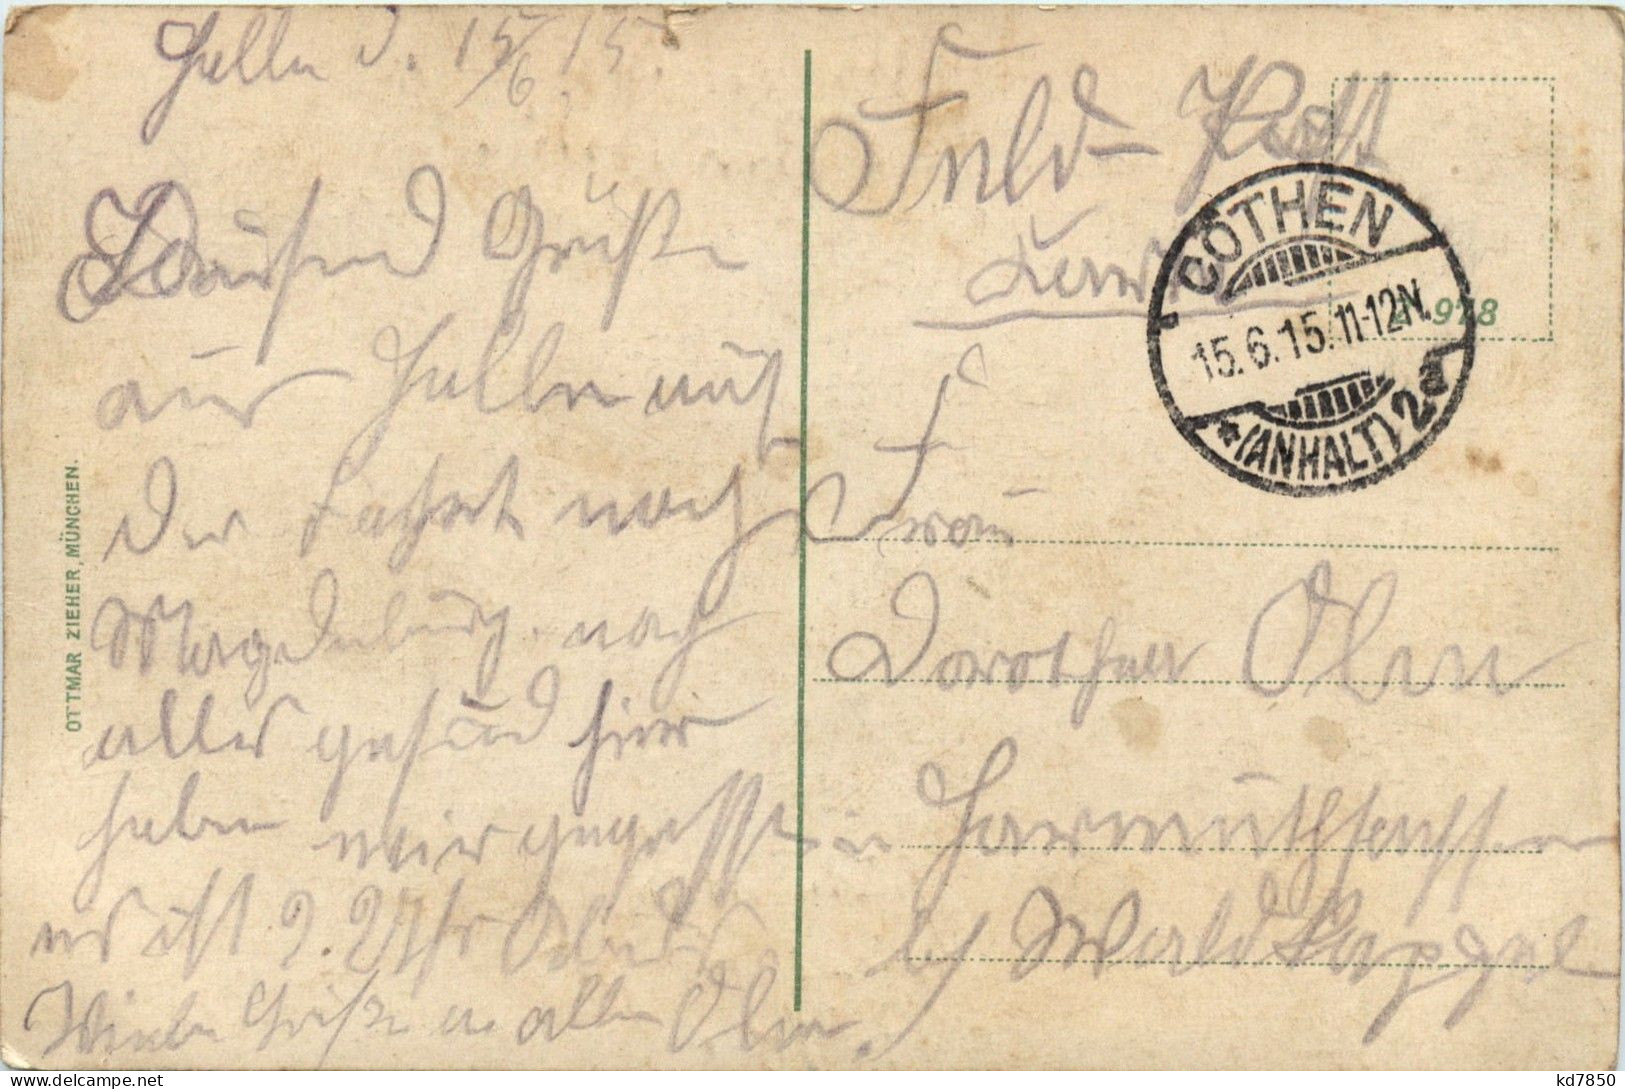 Halle d. 15/6 15.
Tausend Grüße
aus Halle auf
der Fahrt nach
Magdeburg. noch
alles gesund hier
haben wir gegessen
es ist 9. Uhr Abends
Viele Grüße an alle
OTTMAR ZIEHER, MÜNCHEN.
Feld-Post
Karte
CÖTHEN
15.6.15.11-12N.
*(ANHALT) 2a
2 978
Frau
Dorothea
in Harmuthsachsen
bei Waldkappel
kd7850